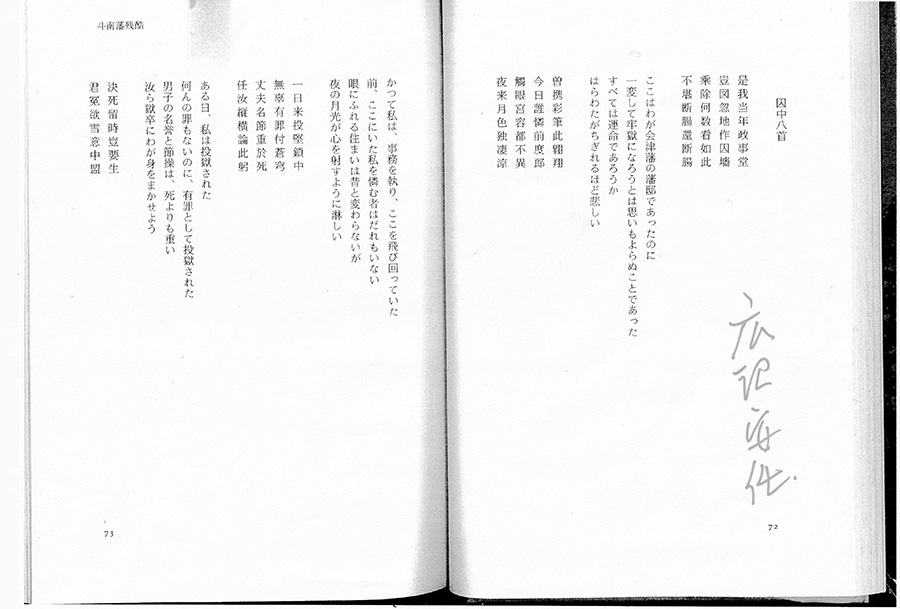 囚中八首
是我当年政事堂
豈図忽地作囚墻
乗除何数看如此
不堪断腸還断腸
ここはわが会津藩の藩邸であったのに
一変して牢獄になろうとは思いもよらぬことであった
すべては運命であろうか
はらわたがちぎれるほど悲しい
曽携彩筆此翱翔
今日誰憐前度郎
觸眼宮容都不異
夜来月色独凄涼
72
斗南藩残酷
かつて私は、事務を執り、ここを飛び回っていた
前、ここにいた私を憐む者はだれもいない
眼にふれる住まいは昔と変わらないが
夜の月光が心を射すように淋しい
一日来投堅鎖中
無辜有罪付蒼穹
丈夫名節重於死
任汝縦横論此躬
ある日、私は投獄された
何んの罪もないのに、有罪として投獄された
男子の名誉と節操は、死よりも重い
汝ら獄卒にわが身をまかせよう
決死留時豈要生
君冤欲雪意中盟
73